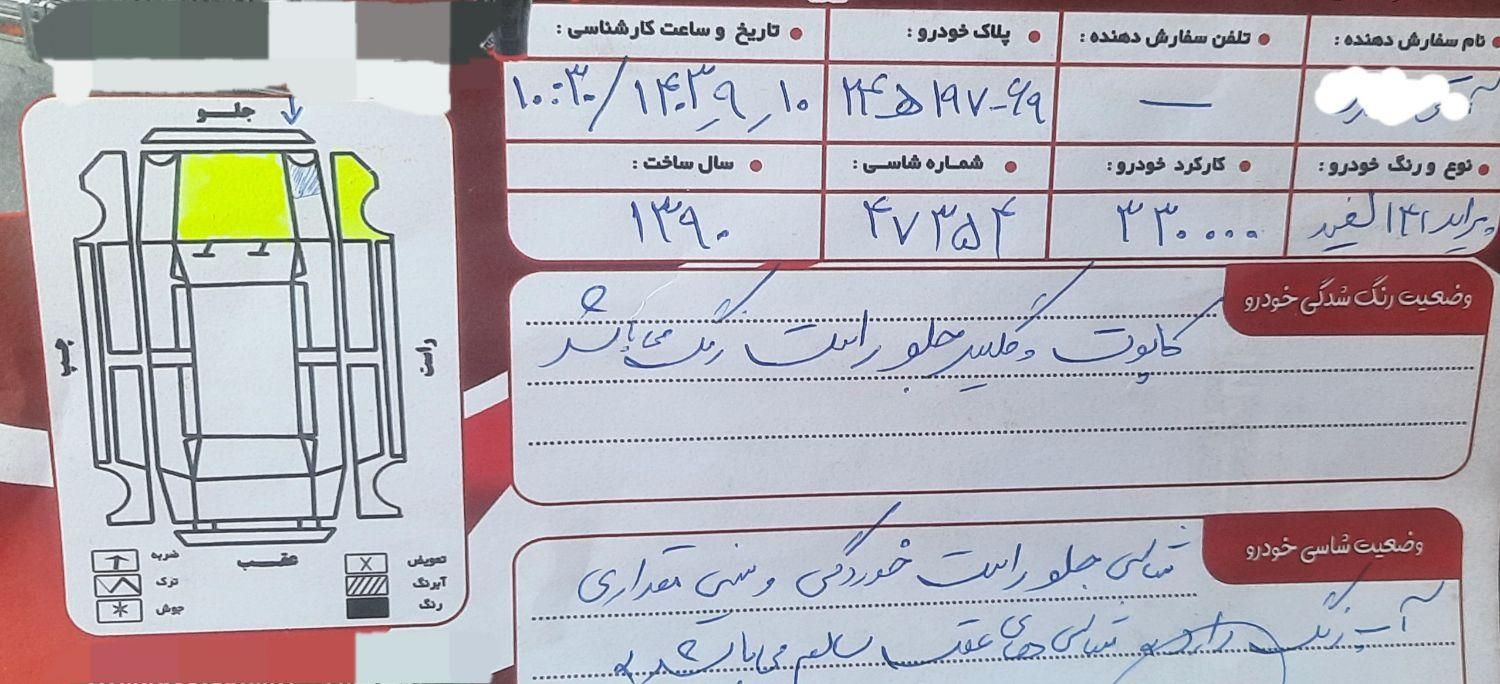 نام سفارش دهنده :
تلفن سفارش دهنده :
پلاک خودرو :
تاریخ و ساعت کارشناسی :
—
۲۴ ه ۱۹۷-۶۹
۱۰:۳۰/۱۴۰۳,۹,۱۰
نوع و رنگ خودرو :
کارکرد خودرو :
شماره شاسی :
سال ساخت :
پراید ۱۴۱ سفید
۳۳۰۰۰۰
۴۷۳۵۴
۱۳۹۰
وضعیت رنگ شدگی خودرو
کاپوت و گلگیر جلو راست رنگ می باشد
وضعیت شاسی خودرو
شاسی جلو راست خوردگی و مقداری
آب رنگ دارد و شاسی های عقب سالم می باشد
جلو
راست
چپ
عقب
تعویض
X
آبرنگ
رنگ
ضربه
ترک
جوش